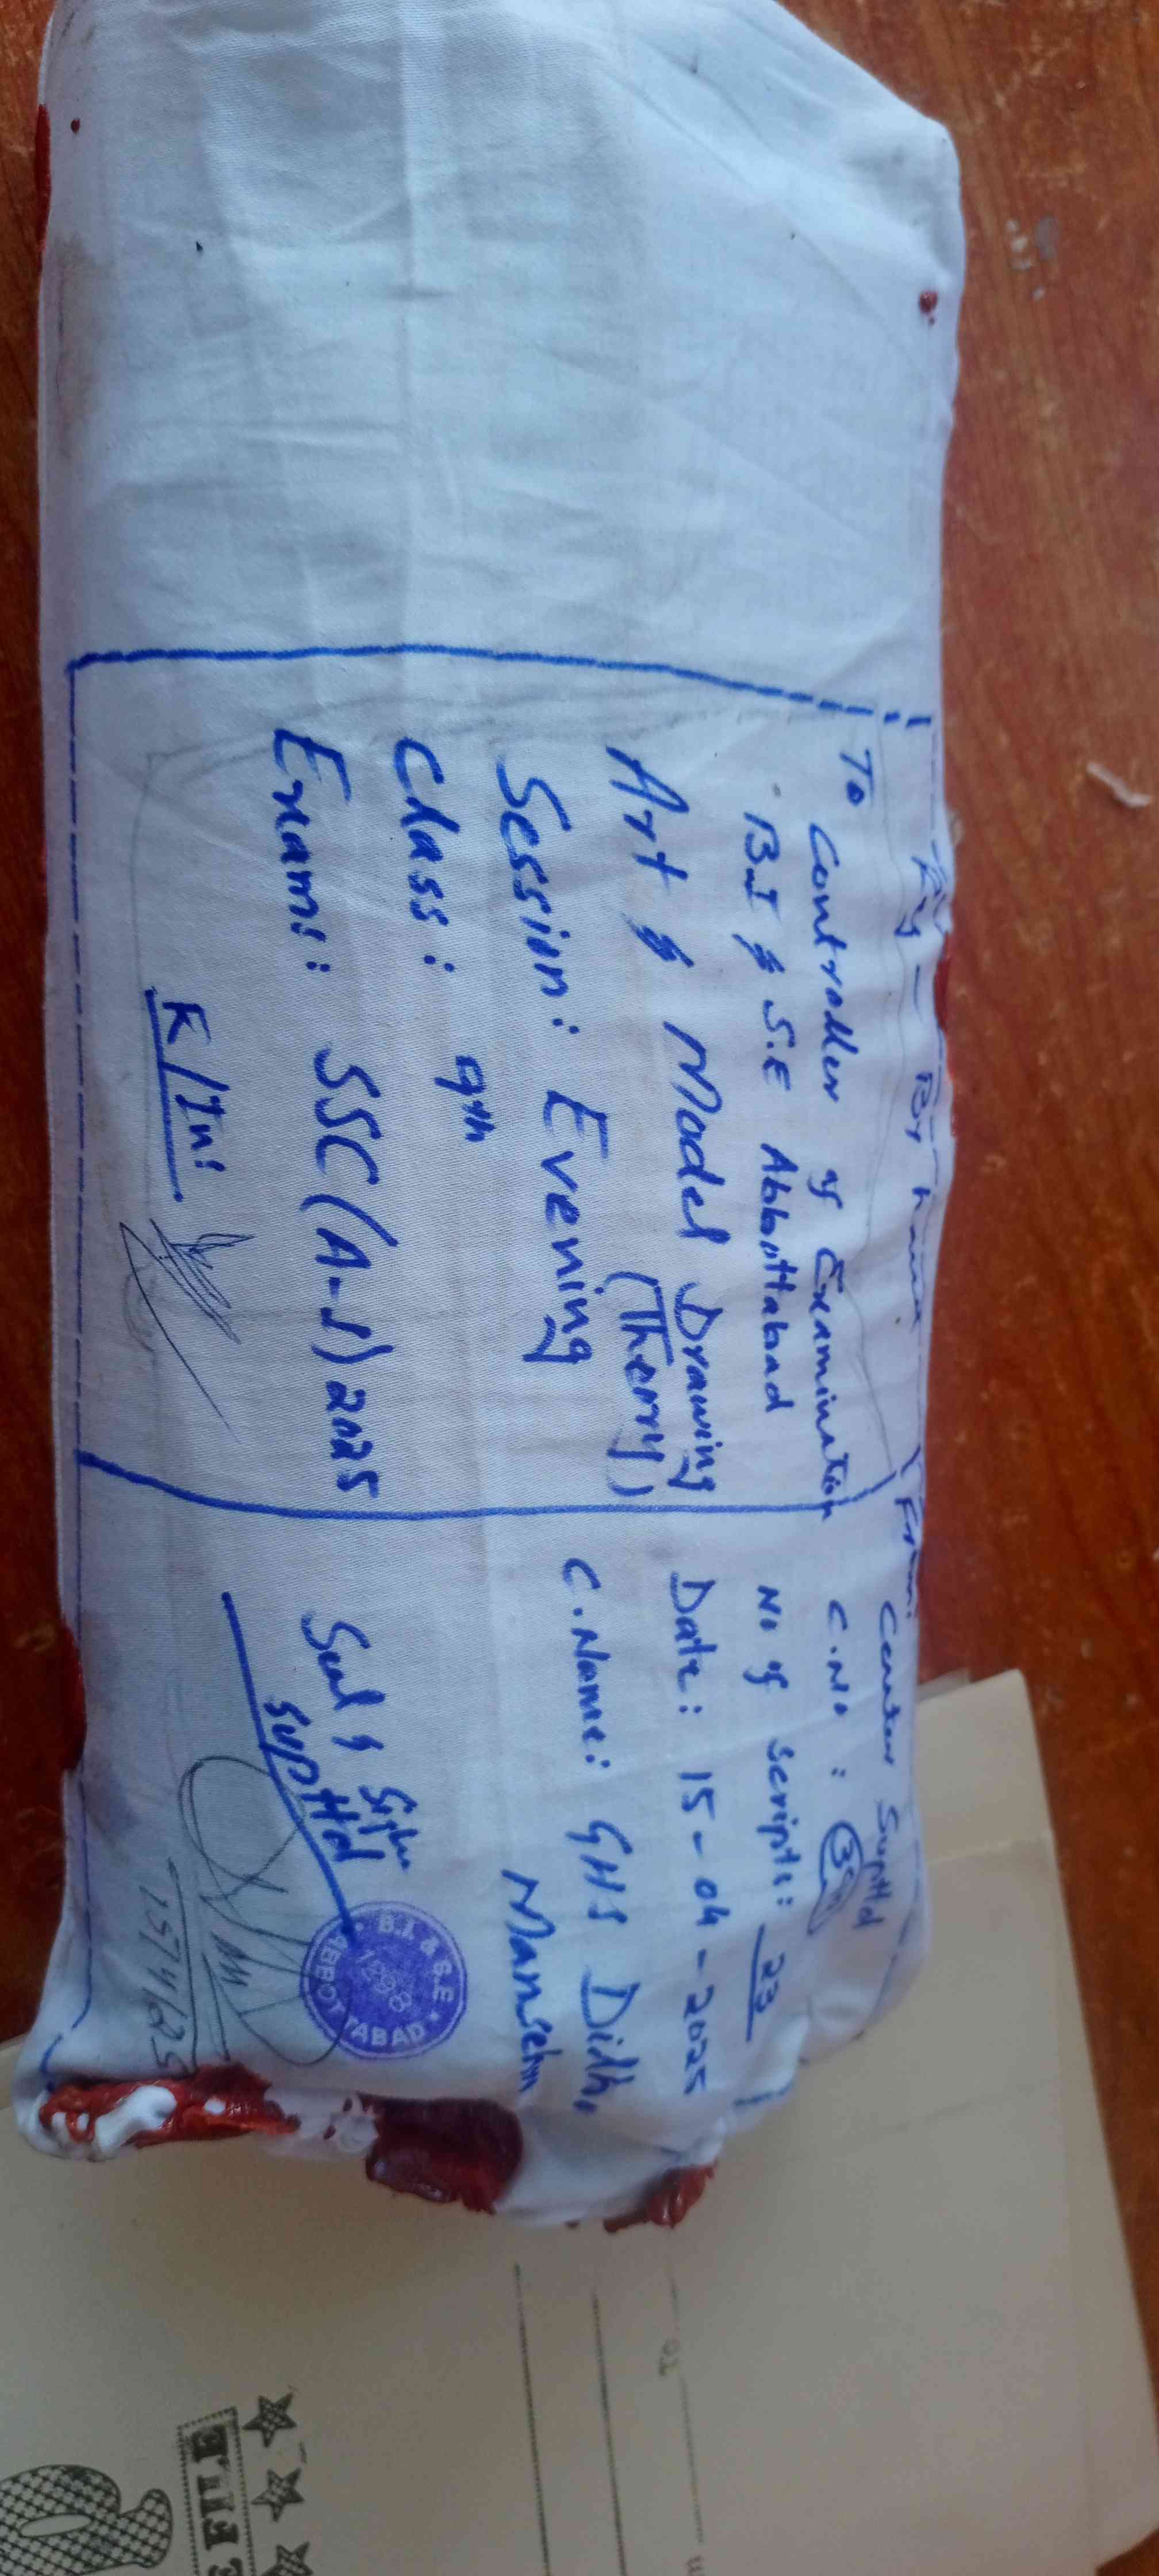 By hand
To
Controller of Examination
B.I & S.E Abbottabad
Art & Model Drawing
(Theory)
Session: Evening
Class: 9th
Exam: SSC(A-I) 2025
K/In:
From:
Center Suptd
C.No:
No of Scripts: 23
Date: 15-04-2025
C.Name: GHS Didh,
Mansehra
Seal & Sign
Suptd
B.I. & S.E
1298
ABBOTTABAD
15/4/025
TO
FILE